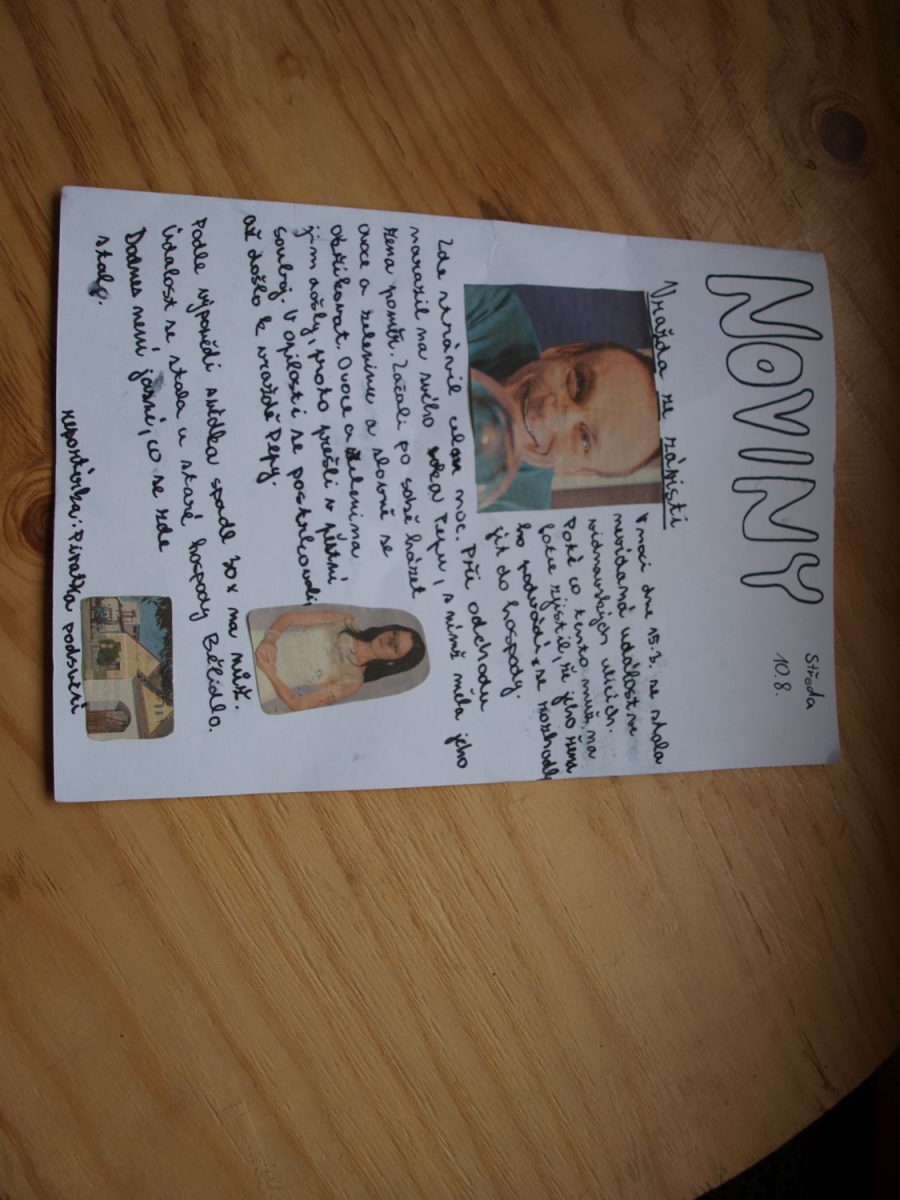 NOVINY
Středa
10.8.
Vražda ze zášti
V noci dne 15.3. se stala
nevídaná událost ve
vidnavských ulicích.
Poté co tento muž na
fotce zjistil, že jeho žena
ho podvádí, se rozhodl
jít do hospody.
Zde strávil celou noc. Při odchodu
narazil na svého soka Pepu, s nímž měla jeho
žena poměr. Začali po sobě házet
ovoce a zeleninu a slovně se
otírkovat. Ovoce a zelenina
jim došly, proto přešli v pěstní
souboj. V opilosti se postrkovali
až došlo k vraždě Pepy.
Podle výpovědi svědka spadl 30x na nůž.
Událost se stala u staré hospody Bělidlo.
Dodnes není jasné, co se zde
stalo.
Reportérka: Pirátka podsvětí